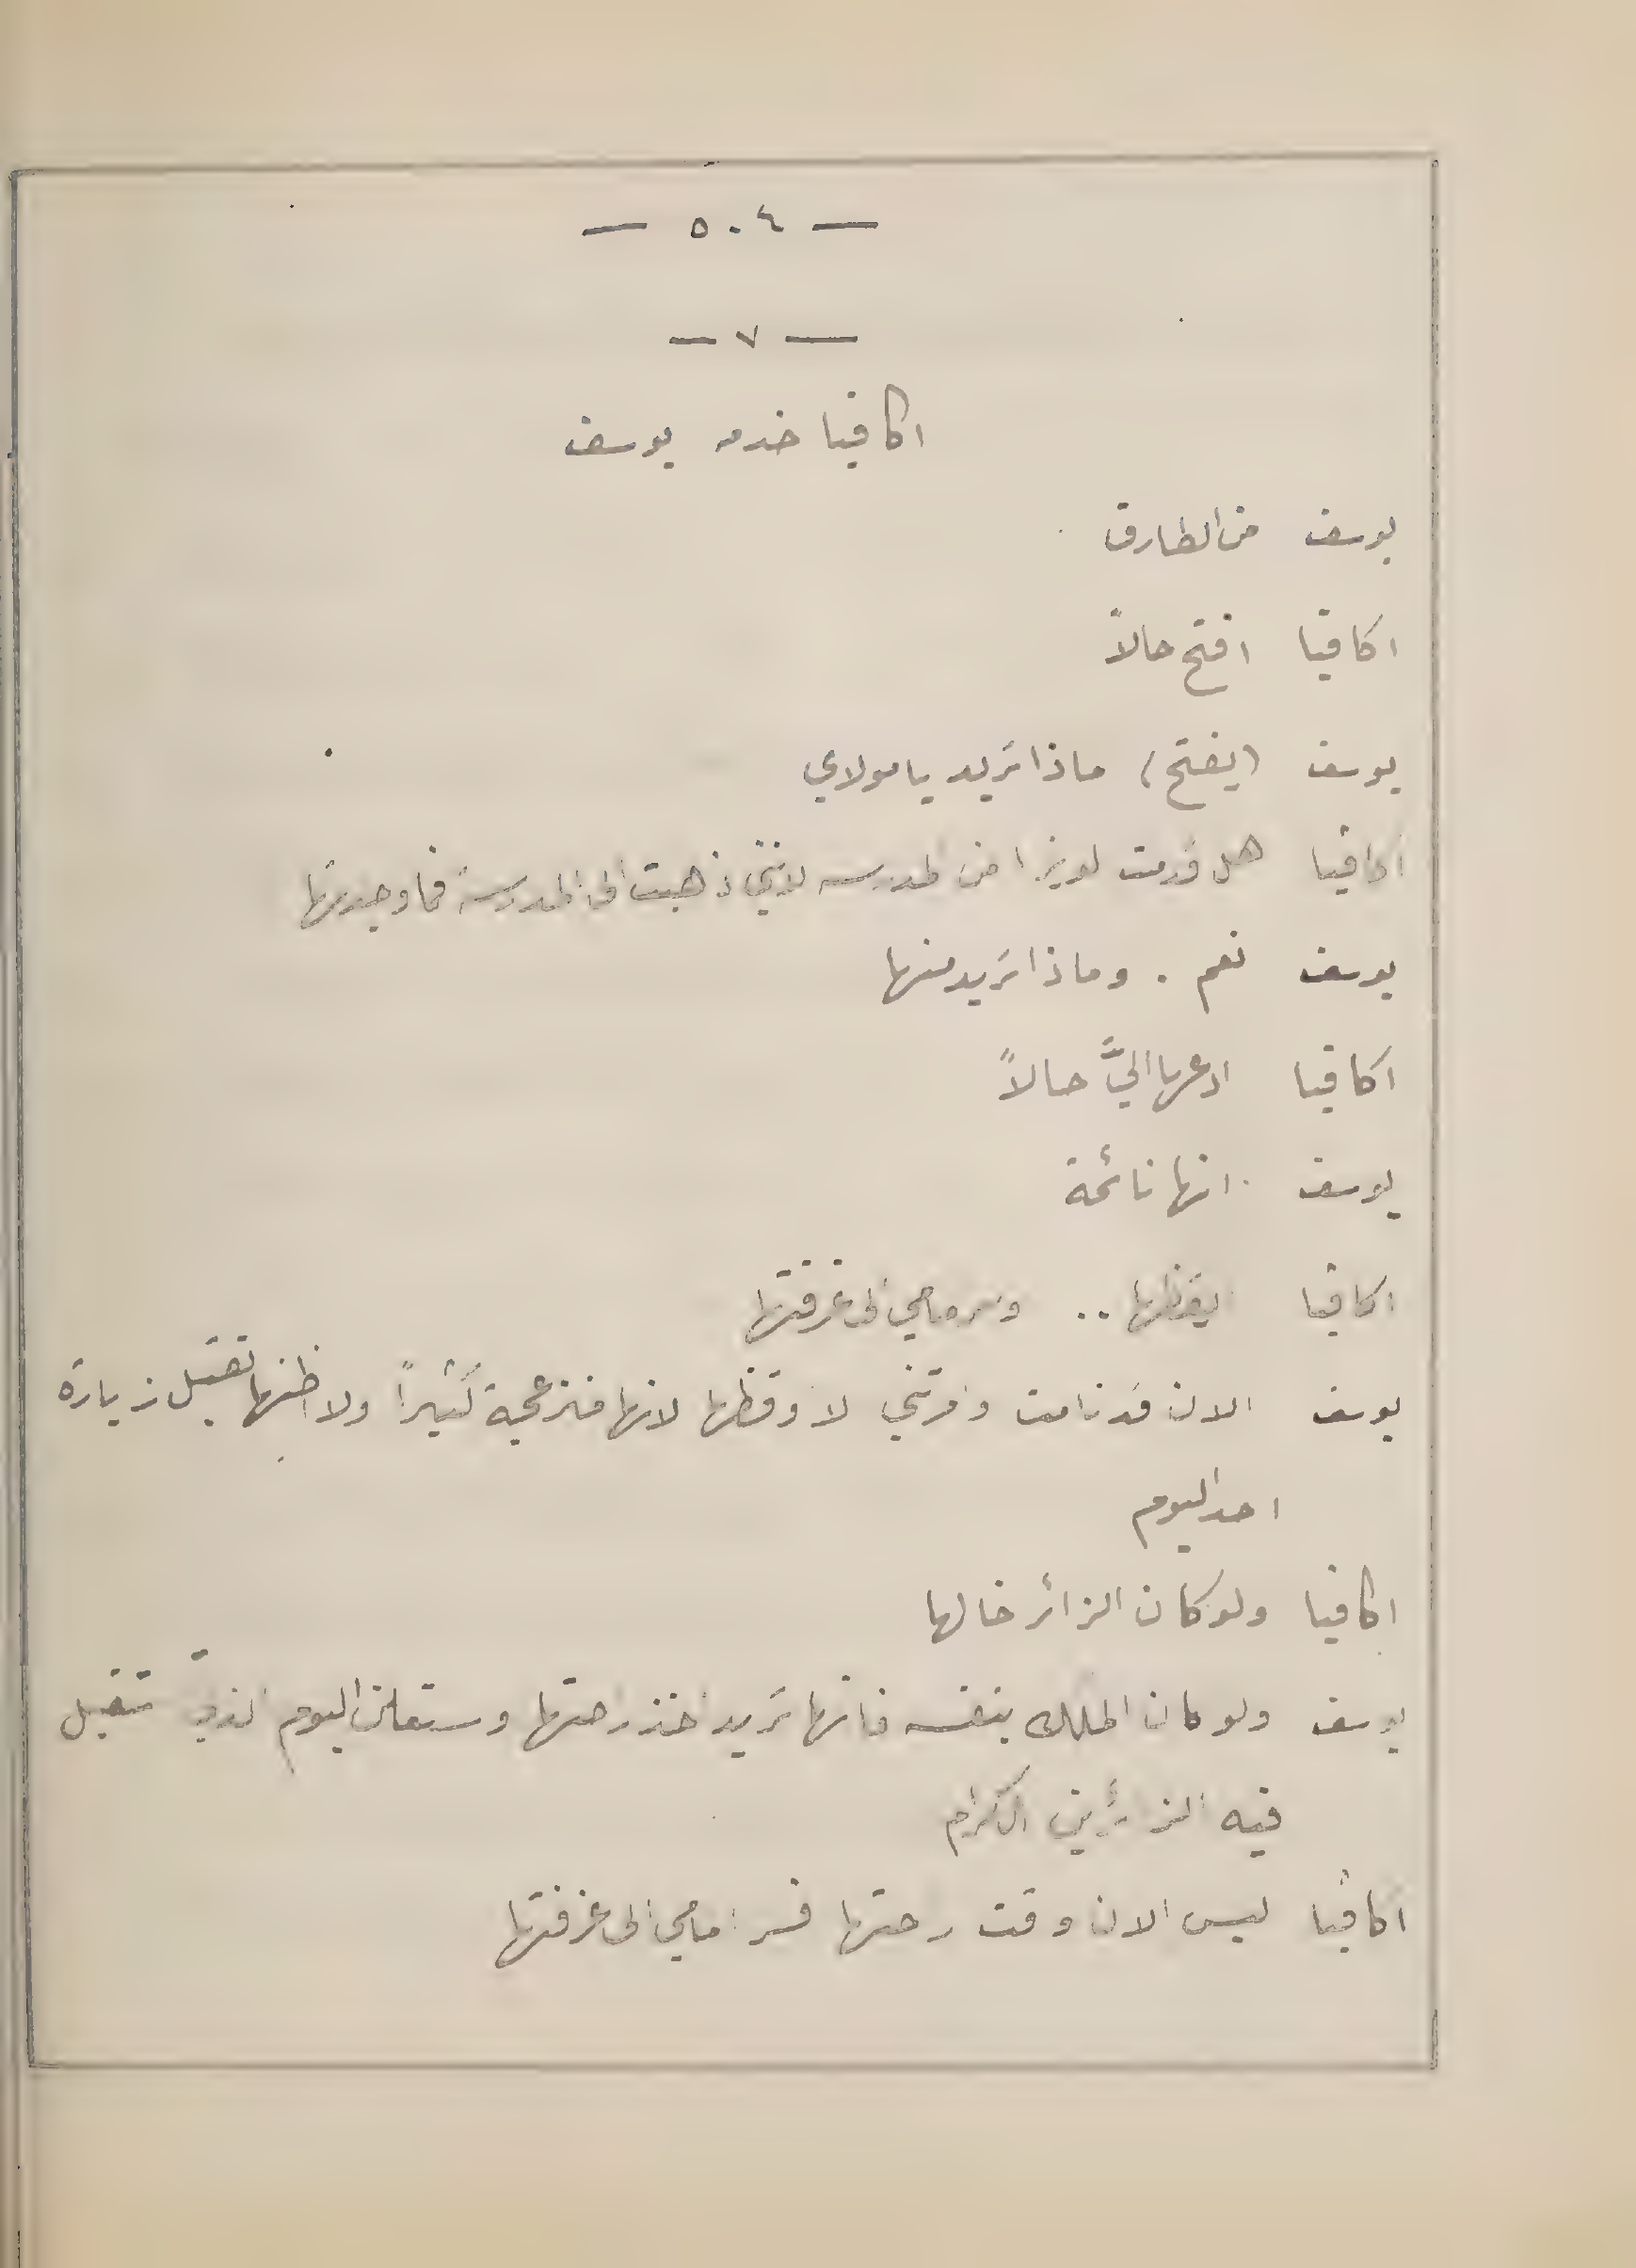 — ٥٠٤ —
— ٧ —
اكافيا خدمه يوسف
يوسف من الطارق
اكافيا افتح حالاً
يوسف (يفتح) ماذا تريد يا مولاي
اكافيا هل قدمت لويزا من المدرسه لانني ذهبت الى المدرسة فما وجدتها
يوسف نعم . وماذا تريد منها
اكافيا ادعها اليَّ حالاً
يوسف انها نائمة
اكافيا ايقظها .. وسر امامي الى غرفتها
يوسف الان قد نامت وامرتني لا اوقظها لانها منزعجة كثيراً ولا اظنها تقبل زيارة
احد اليوم
اكافيا ولو كان الزائر خالها
يوسف ولو كان الملك بنفسه فانها تريد اخذ راحتها وستعلن اليوم الذي تقبل
فيه الزائرين الكرام
اكافيا ليس الان وقت راحتها فسر امامي الى غرفتها